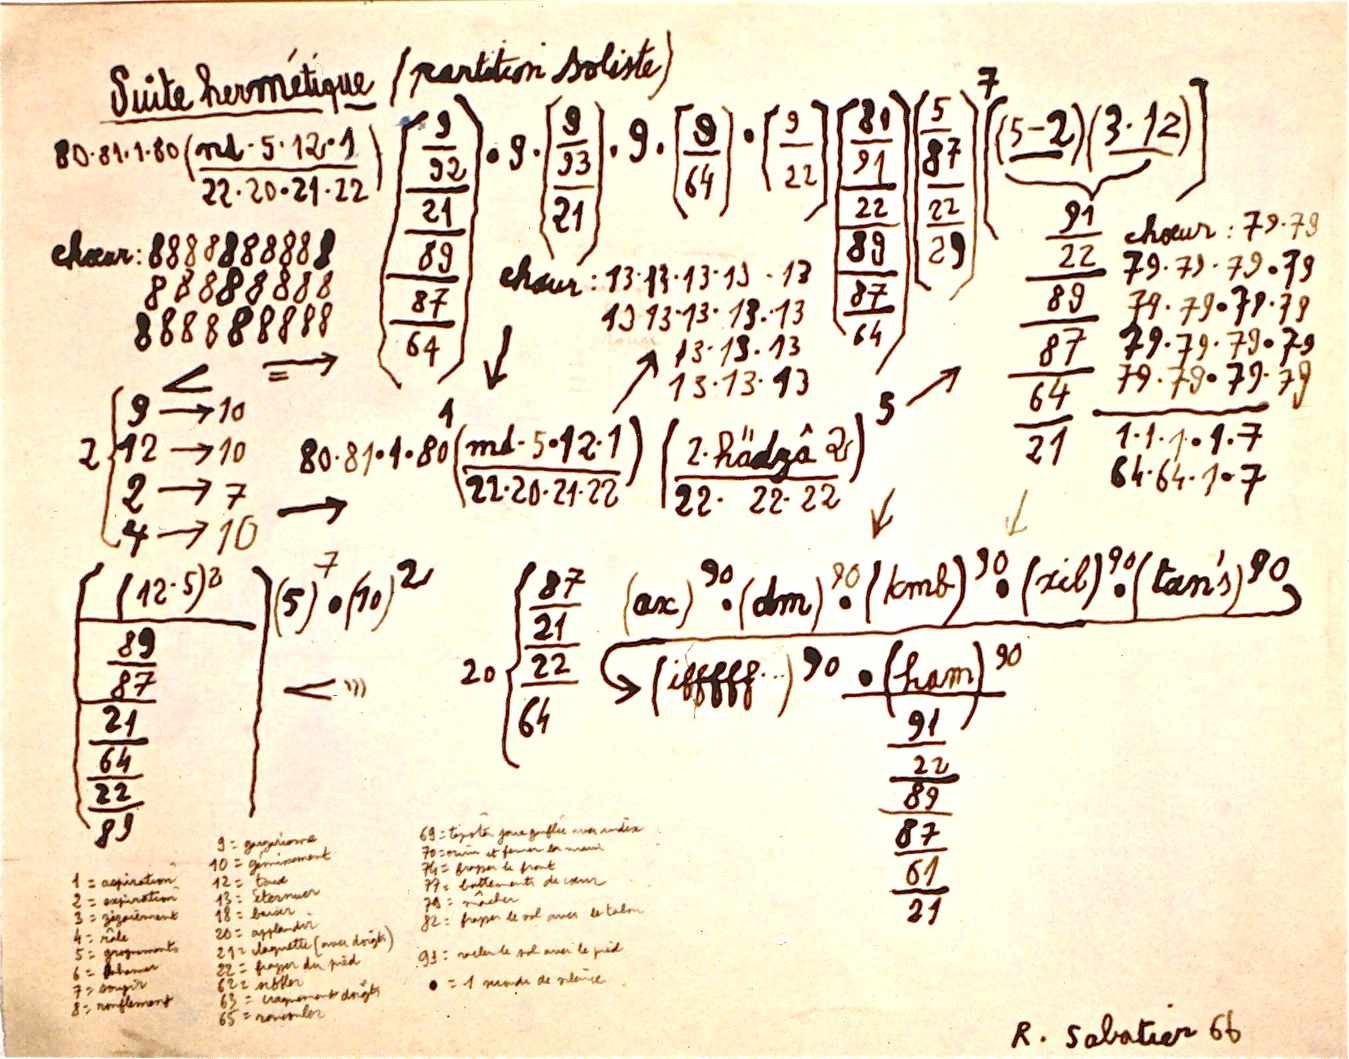 Suite hermétique (partition soliste)
80·81·1·80 (md·5·12·1 / 22·20·21·22) (9/92/21/89/87/64) • 9 • (9/93/21) • 9 • [9/64] • [9/22] [81/91/22/89/87/64] (5/87/22/29)⁷ [(5-2)(3·12)]
91
22
89
87
64
21
chœur: 8888888888
88888888
888888888
chœur: 13·13·13·13·13
13 13·13·13·13
13·13·13
13·13·13
chœur: 79·79
79·79·79•79
79·79•79·79
79·79·79•79
79·79•79·79
1·1·1·1·7
64·64·1·7
<
=
2 { 9 → 10
12 → 10
2 → 7
4 → 10
1
80·81·1·80 (md·5·12·1 / 22·20·21·22) (2·hädzâ 2 / 22· 22·22)⁵
[(12·5)² / 89/87/21/64/22/89] (5)⁷•(10)²
< )))
20 { 87/21/22/64
(ax)⁹⁰•(dm)⁹⁰•(kmb)⁹⁰•(xib)⁹⁰•(tan's)⁹⁰
(iffffff...)⁹⁰ •(ham)⁹⁰
91
22
89
87
61
21
1 = aspiration
2 = expiration
3 = zézaiement
4 = râle
5 = grognements
6 =
7 = soupir
8 = ronflement
9 = gargarisme
10 = gémissement
12 = toux
13 = éternuer
18 = baiser
20 = applaudir
21 = claquette (avec doigts)
22 = frapper du pied
62 = siffler
63 = craquement doigts
65 = roucouler
69 = tapoter joue gonflée avec index
70 = ouvrir et fermer la main
74 = frapper le front
77 = battements de cœur
79 = mâcher
82 = frapper le sol avec le talon
93 = racler le sol avec le pied
• = 1 seconde de silence
R. Sabatier 66